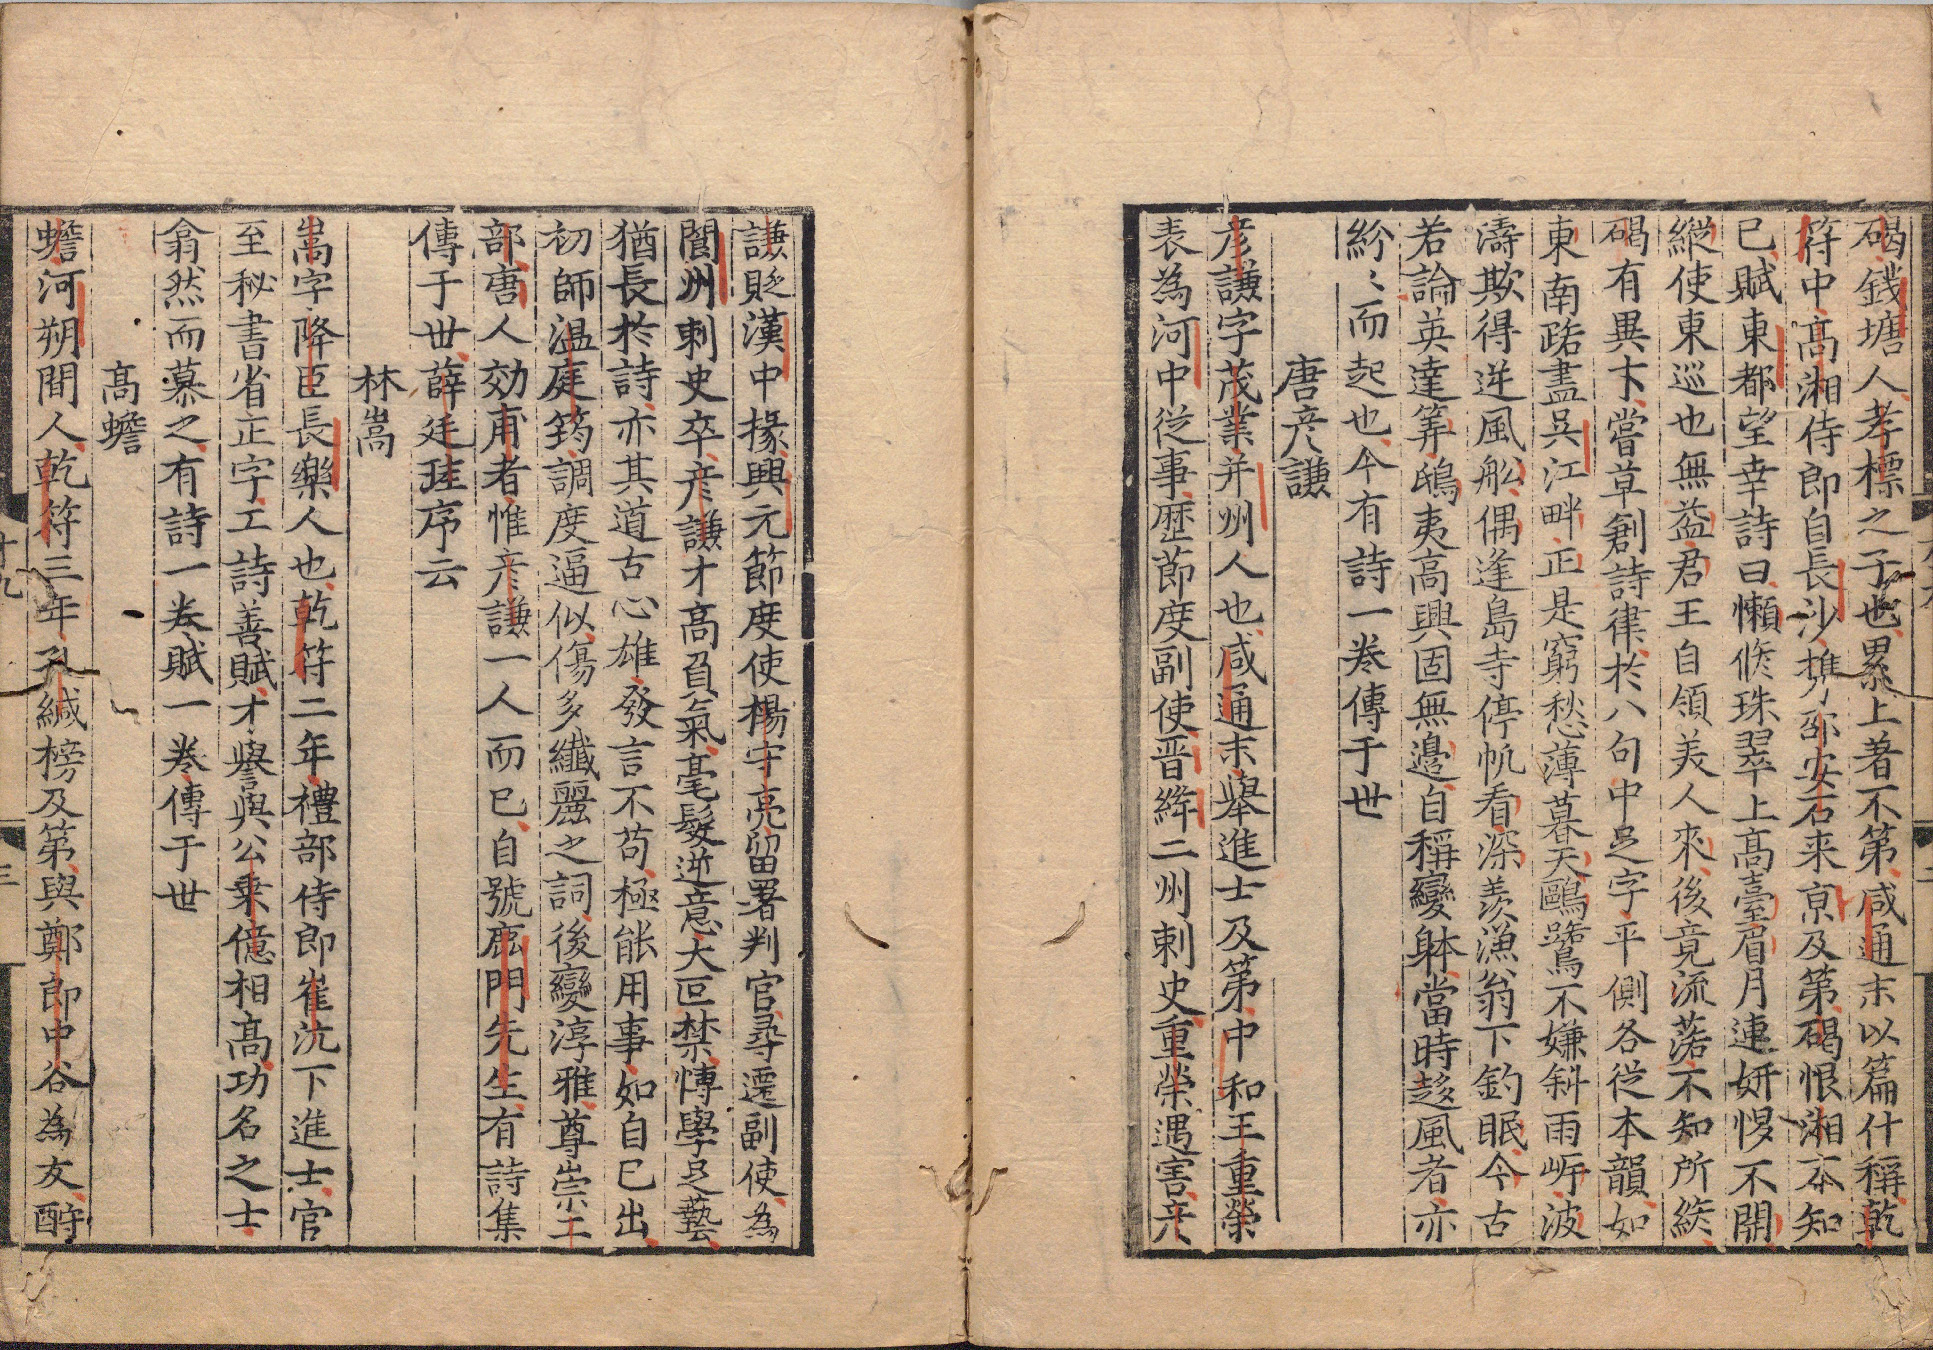 碣錢塘人孝標之子也累上著不第咸通末以篇什稱乾
符中髙湘侍郎自長沙携邵安石来京及第碣恨湘不知
已賦東都望幸詩曰懶修珠翠上髙臺眉月連姸惕不開
縱使東巡也無益君王自領美人來後竟流落不知所終
碣有異卞嘗草創詩律於八句中足字平側各從本韻如
東南路盡吳江畔正是窮愁薄暮天鷗鷺不嫌斜雨岸波
濤欺得逆風舩偶逢島寺停帆看深羨漁翁下釣眠今古
若論英達筭鴟夷高興固無邊自稱變躰當時趍風者亦
紛〻而起也今有詩一卷傳于世
唐彦謙
彦謙字茂業并州人也咸通末舉進士及第中和王重榮
表為河中從事歴節度副使晉絳二州刺史重榮遇害彦
謙貶漢中掾興元節度使楊守亮留署判官尋遷副使為
閬州刺史卒彦謙才高負氣毫髮逆意大叵禁慱學足藝
猶長於詩亦其道古心雄發言不苟極能用事如自已出
初師温庭筠調度逼似傷多纖麗之詞後變淳雅尊崇工
部唐人効甫者惟彦謙一人而已自號鹿門先生有詩集
傳于世薛廷珪序云
林嵩
嵩字降臣長樂人也乾符二年禮部侍郎崔沆下進士官
至秘書省正字工詩善賦才譽與公乗億相髙功名之士
翕然而慕之有詩一卷賦一卷傳于世
高蟾
蟾河朔間人乾符三年孔緘榜及第與鄭郎中谷為友酧